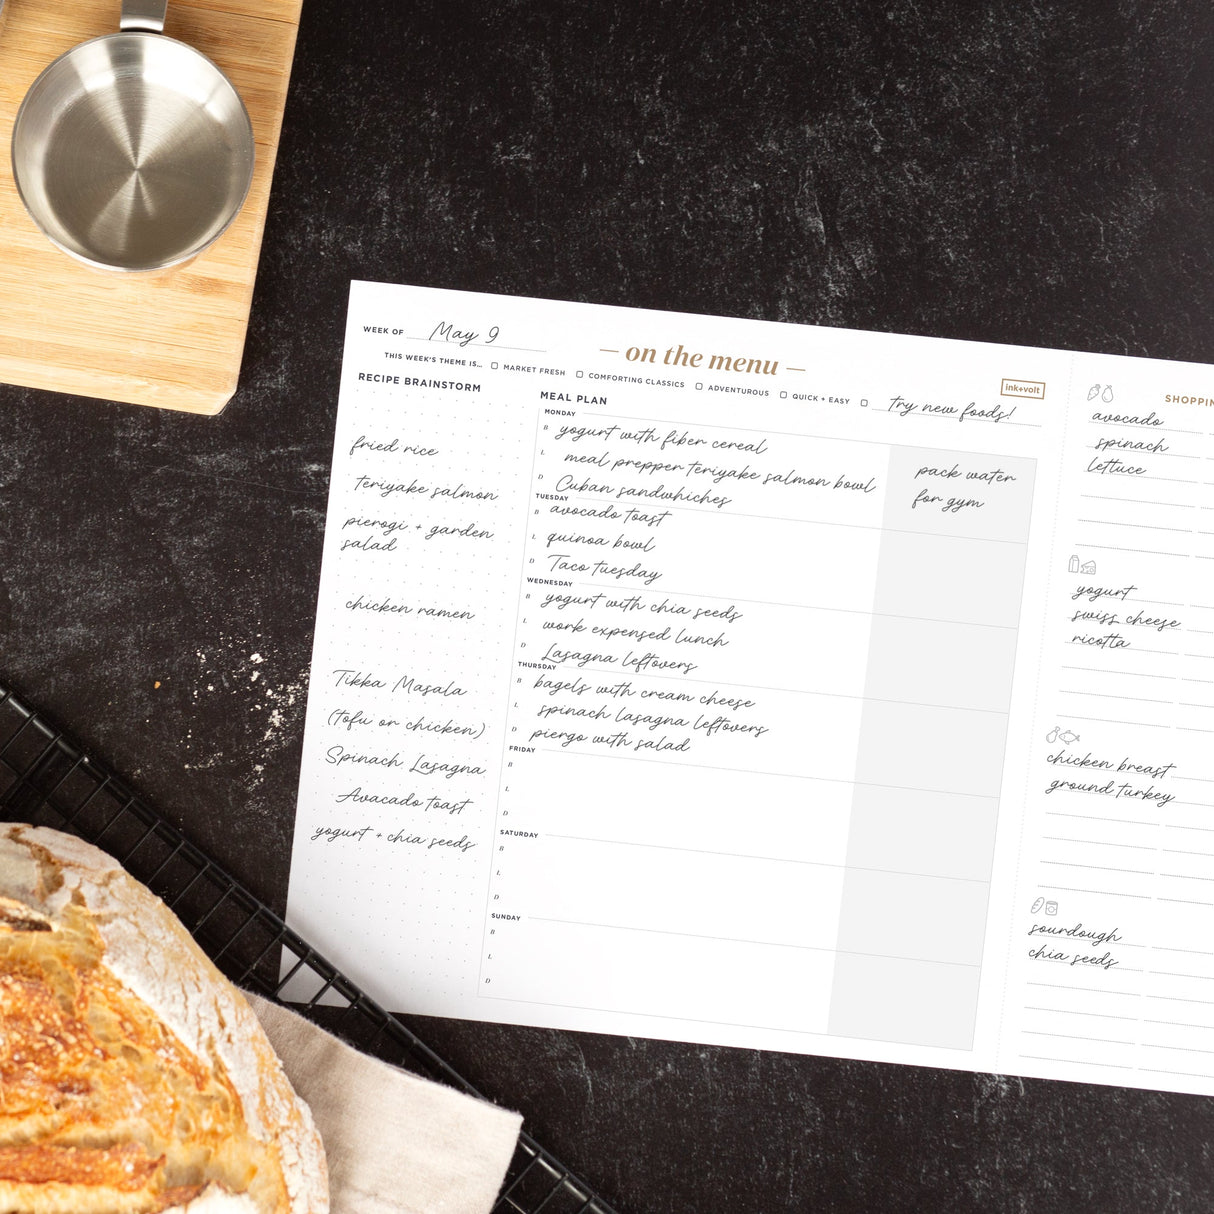 WEEK OF May 9
— on the menu —
ink+volt
THIS WEEK'S THEME IS... MARKET FRESH COMFORTING CLASSICS ADVENTUROUS QUICK + EASY try new foods!
RECIPE BRAINSTORM
fried rice
teriyake salmon
pierogi + garden
salad
chicken ramen
Tikka Masala
(tofu or chicken)
Spinach Lasagna
Avacado toast
yogurt + chia seeds
MEAL PLAN
MONDAY
B yogurt with fiber cereal
L meal prepper teriyake salmon bowl
D Cuban sandwhiches
pack water
for gym
TUESDAY
B avocado toast
L quinoa bowl
D Taco tuesday
WEDNESDAY
B yogurt with chia seeds
L work expensed lunch
D Lasagna leftovers
THURSDAY
B bagels with cream cheese
L spinach lasagna leftovers
D piergo with salad
FRIDAY
B
L
D
SATURDAY
B
L
D
SUNDAY
B
L
D
SHOPPIN
avocado
spinach
lettuce
yogurt
swiss cheese
ricotta
chicken breast
ground turkey
sourdough
chia seeds